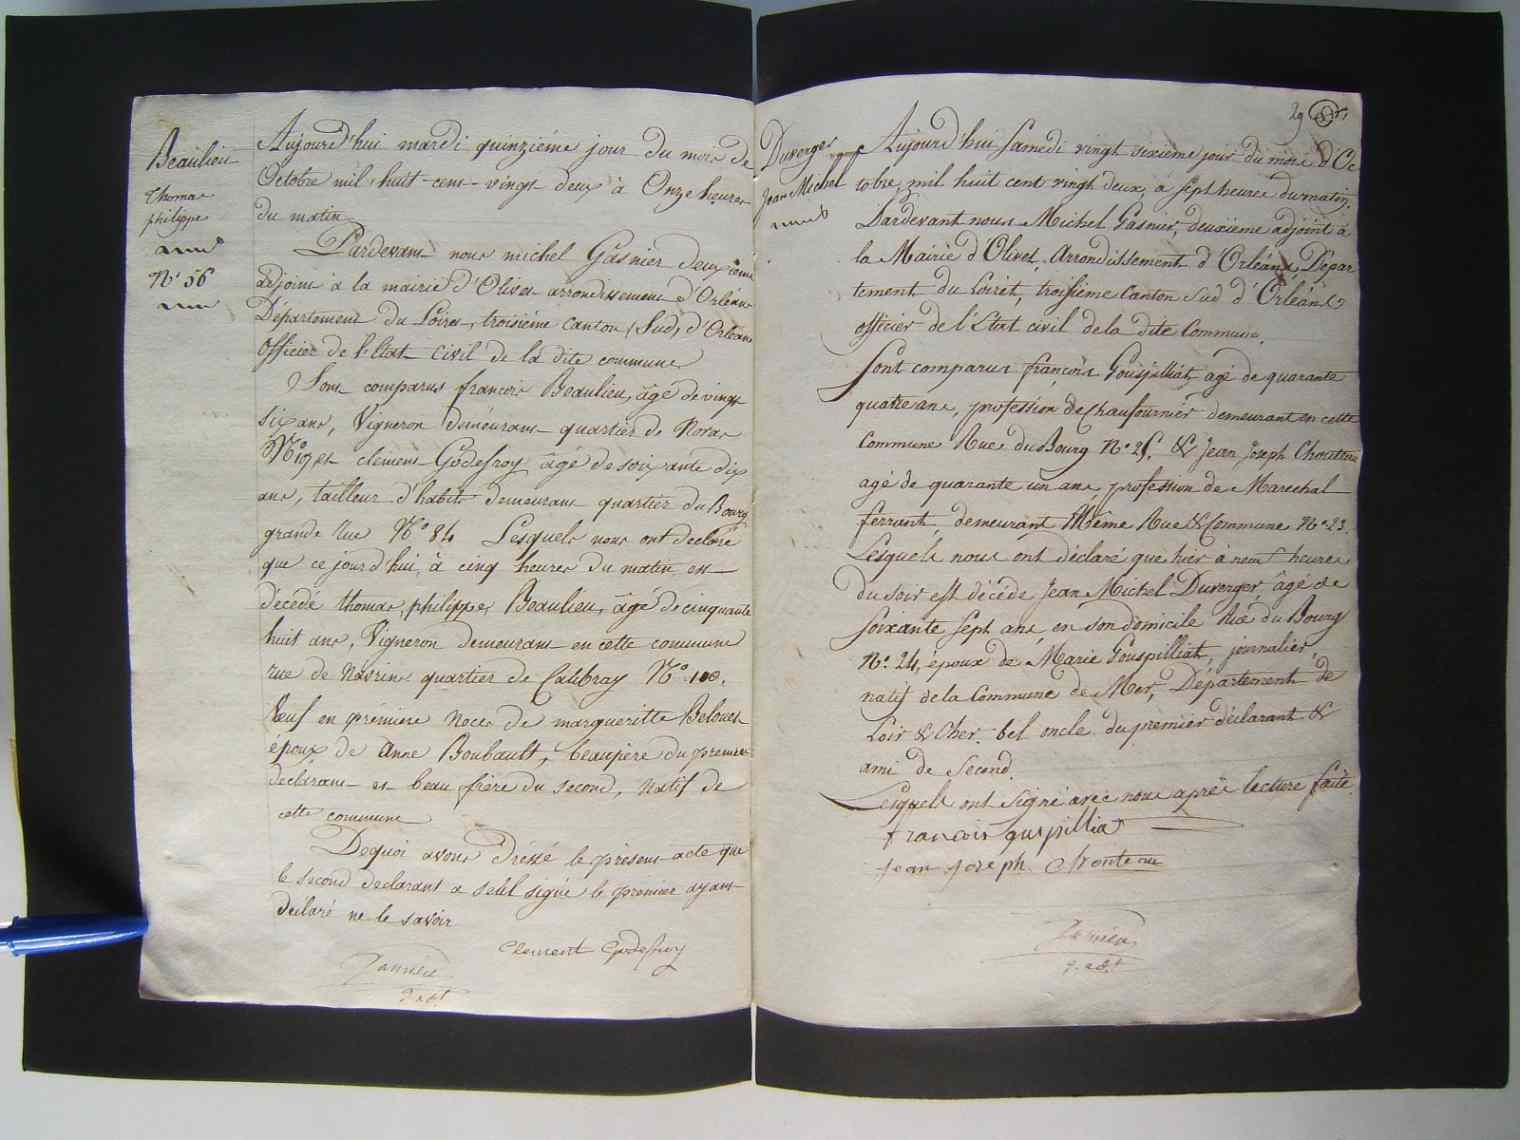 Beaulieu
Thomas
philippe
N° 56
Aujourd'hui mardi quinziéme jour du mois de
Octobre mil huit-cent-vingt deux à Onze heures
du matin
Pardevant nous michel Gasnier deuxième
adjoint à la mairie d'Olivet arrondissement d'Orléans
Département du Loiret, troisiéme canton (Sud) d'Orléans
officier de l'Etat civil de la dite commune
Sont comparus francois Beaulieu, âgé de vingt
six ans, Vigneron demeurant quartier de
N° 19 et clément Godefroy âgé de soixante dix
ans, tailleur d'habits demeurant quartier du Bourg
grande rue N° 84 Lesquels nous ont declaré
que ce jourd'hui, à cinq heures du matin est
décedé thomas, philippe Beaulieu, âgé de cinquante
huit ans, Vigneron demeurant en cette commune
rue de quartier de Calibray N° 108.
Veuf en prémiere Noces de margueritte
époux de Anne Boubault, beaupère du premier
declarant et beau frère du second, Natif de
cette commune
Dequoi avons dressé le présent acte que
le second declarant a seul signé le premier ayant
declaré ne le savoir
Clement Godefroy
29
Duverger
Jean Michel
Aujourd'hui Samedi vingt sixième jour du mois d'Oc
tobre, mil huit cent vingt deux, à sept heures du matin.
Pardevant nous Michel Gasnier, deuxième adjoint à
la Mairie d'Olivet, Arrondissement d'Orléans, Dépar
tement du Loiret, troisième Canton Sud d'Orléans
officier de l'Etat civil de la dite Commune.
Sont comparus françois Gouspilliat, agé de quarante
quatre ans, profession de Chaufournier demeurant en cette
Commune Rue du Bourg N° 25. & Jean Joseph
agé de quarante un ans, profession de Marechal
ferrant, demeurant Même Rue & Commune N° 23.
Lesquels nous ont déclaré que hier à neuf heures
du soir est décédé Jean Michel Duverger, âgé de
soixante sept ans en son domicile Rue du Bourg
N° 24, époux de Marie Gouspilliat, journalier,
natif de la Commune de Mer, Département de
Loir & Cher. bel oncle du premier déclarant &
ami de Second.
Lesquels ont signé avec nous après lecture faite.
francois guspillia
Jean Joseph